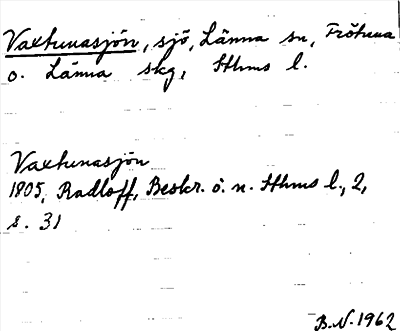 Vaxtunasjön, sjö, Länna sn, Frötuna
o. Länna skg, Sthms l.
Vaxtunasjön
1805, Radloff, Beskr. ö. n. Sthms l., 2,
s. 31
B.N. 1962